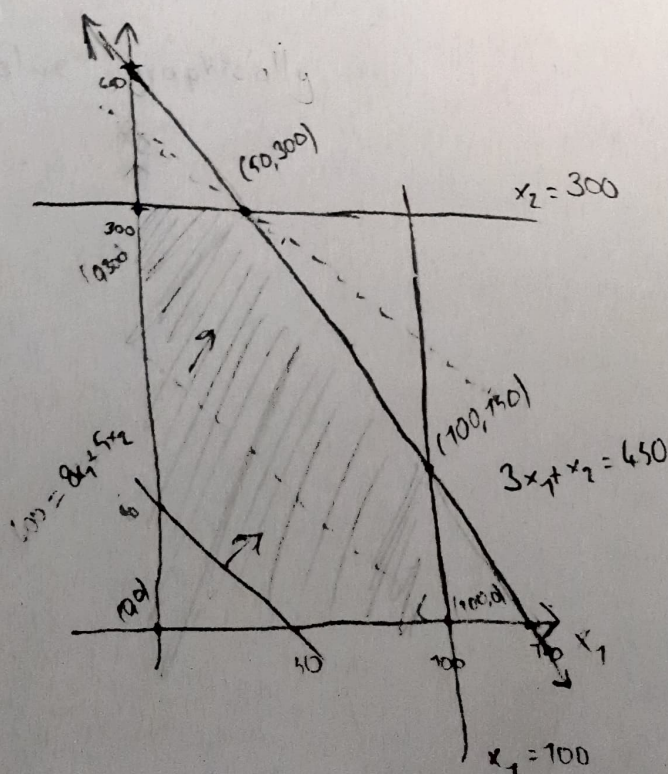 (50,300)
x₂ = 300
300
(0,300)
(100,150)
3x₁+x₂ = 450
= 8x₁+5x₂
(0,0)
(100,0)
50
100
150
x₁
x₁ = 100